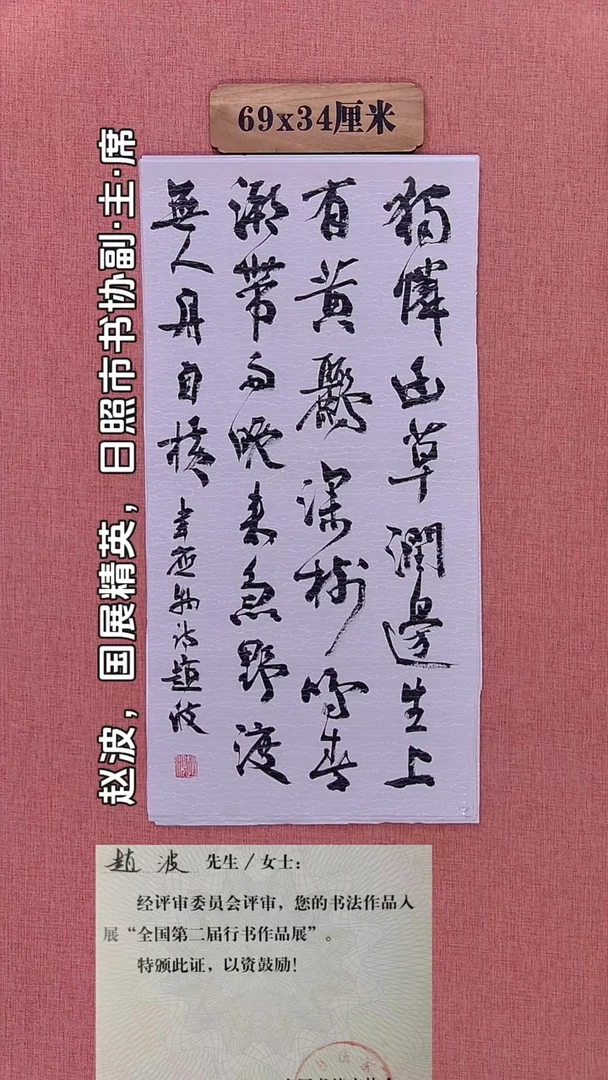 69x34厘米
獨憐幽草澗邊生上
有黃鸝深樹鳴春
潮帶雨晚來急野渡
無人舟自橫
韋應物詩趙波
赵波，国展精英，日照市书协副·主·席
趙波 先生／女士：
经评审委员会评审，您的书法作品入
展“全国第二届行书作品展”。
特颁此证，以资鼓励！